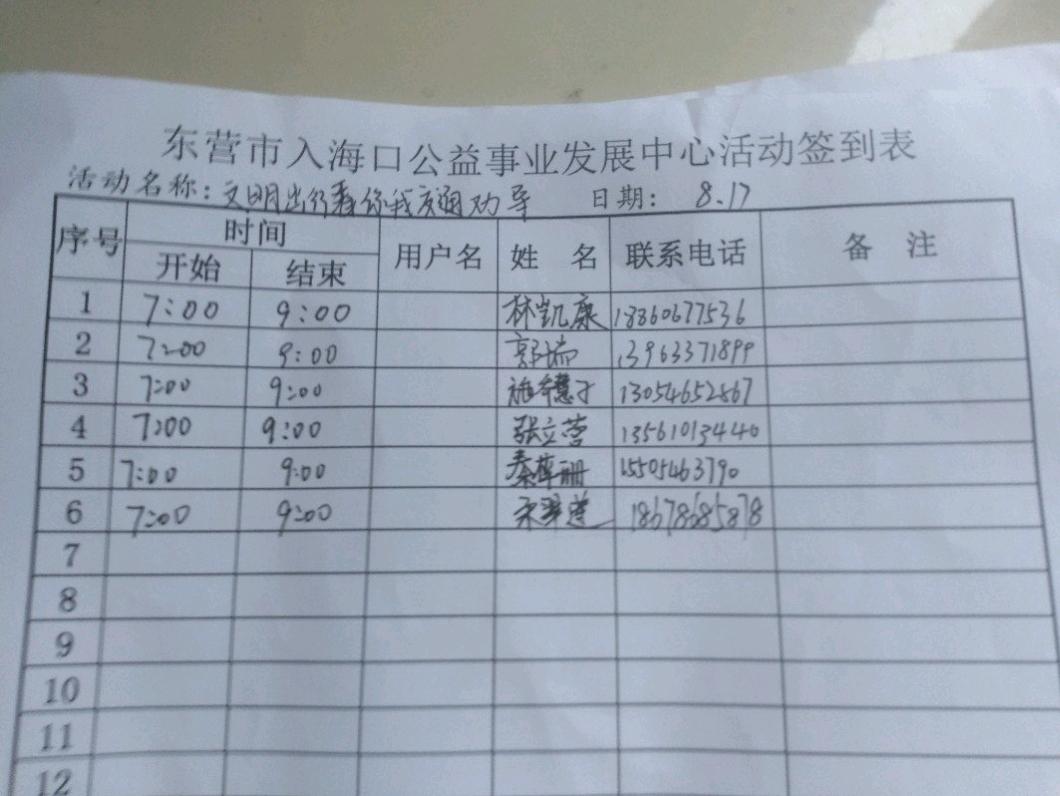 东营市入海口公益事业发展中心活动签到表
活动名称：文明出行春你我交通劝导 日期： 8.17
序号 时间 用户名 姓 名 联系电话 备 注
开始 结束
1 7:00 9:00 林凯康 18860677536
2 7:00 9:00 郭瑞 13963371899
3 7:00 9:00 13054652867
4 7:00 9:00 张立营 13561013440
5 7:00 9:00 秦梓珊 15505463790
6 7:00 9:00 18678685878
7
8
9
10
11
12